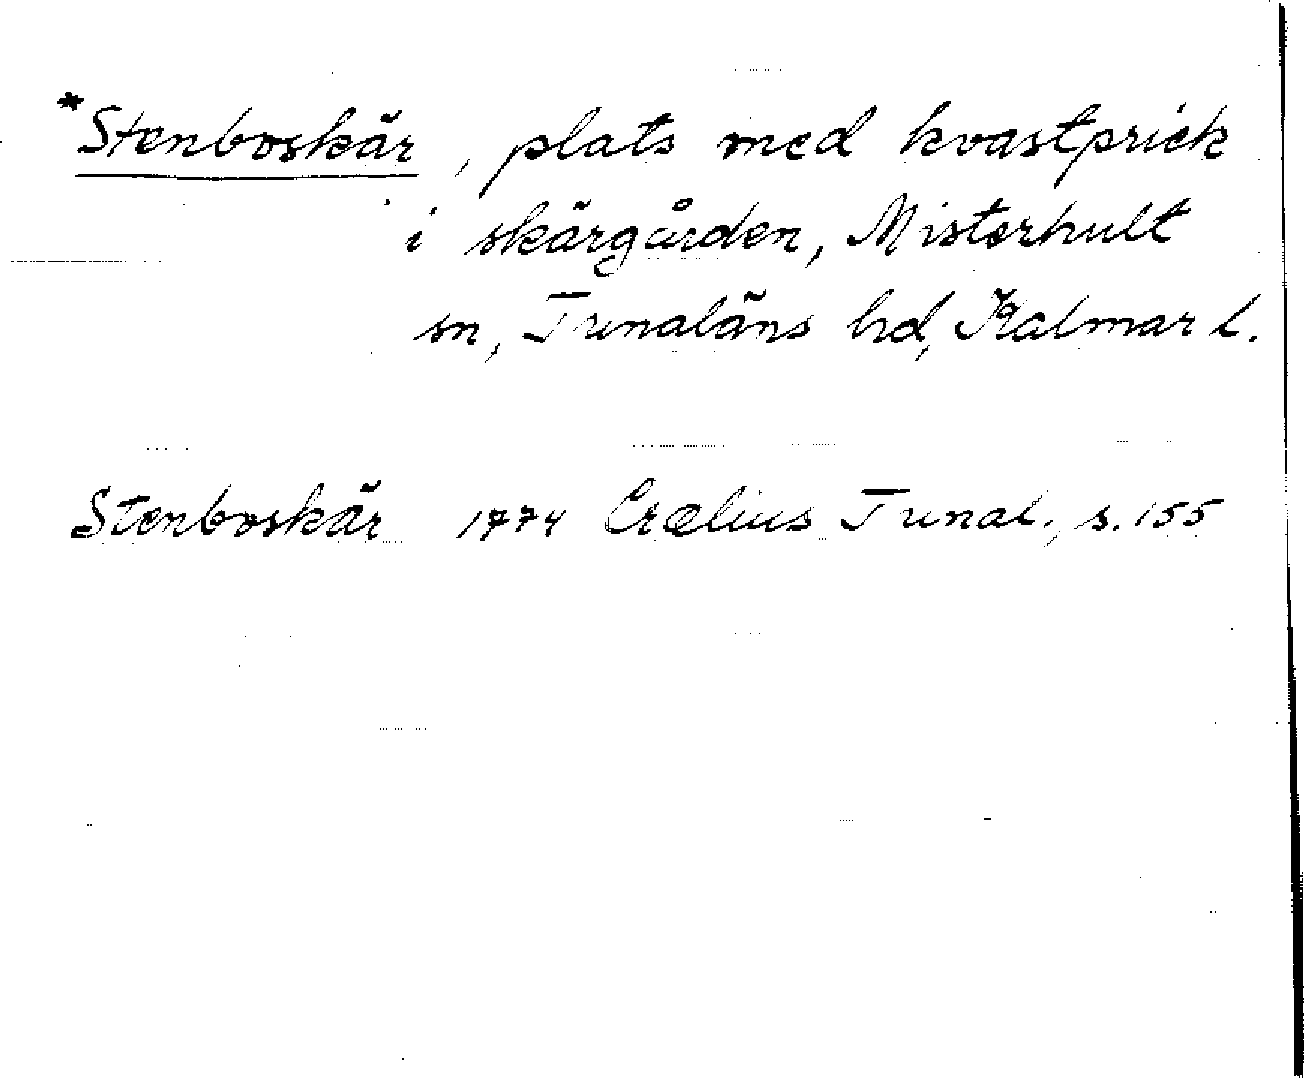 *Stenboskär, plats med kvastprick
i skärgården, Misterhult
sn, Tunaläns hd, Kalmar l.
Stenboskär 1774 Crælius Tunal., s. 155